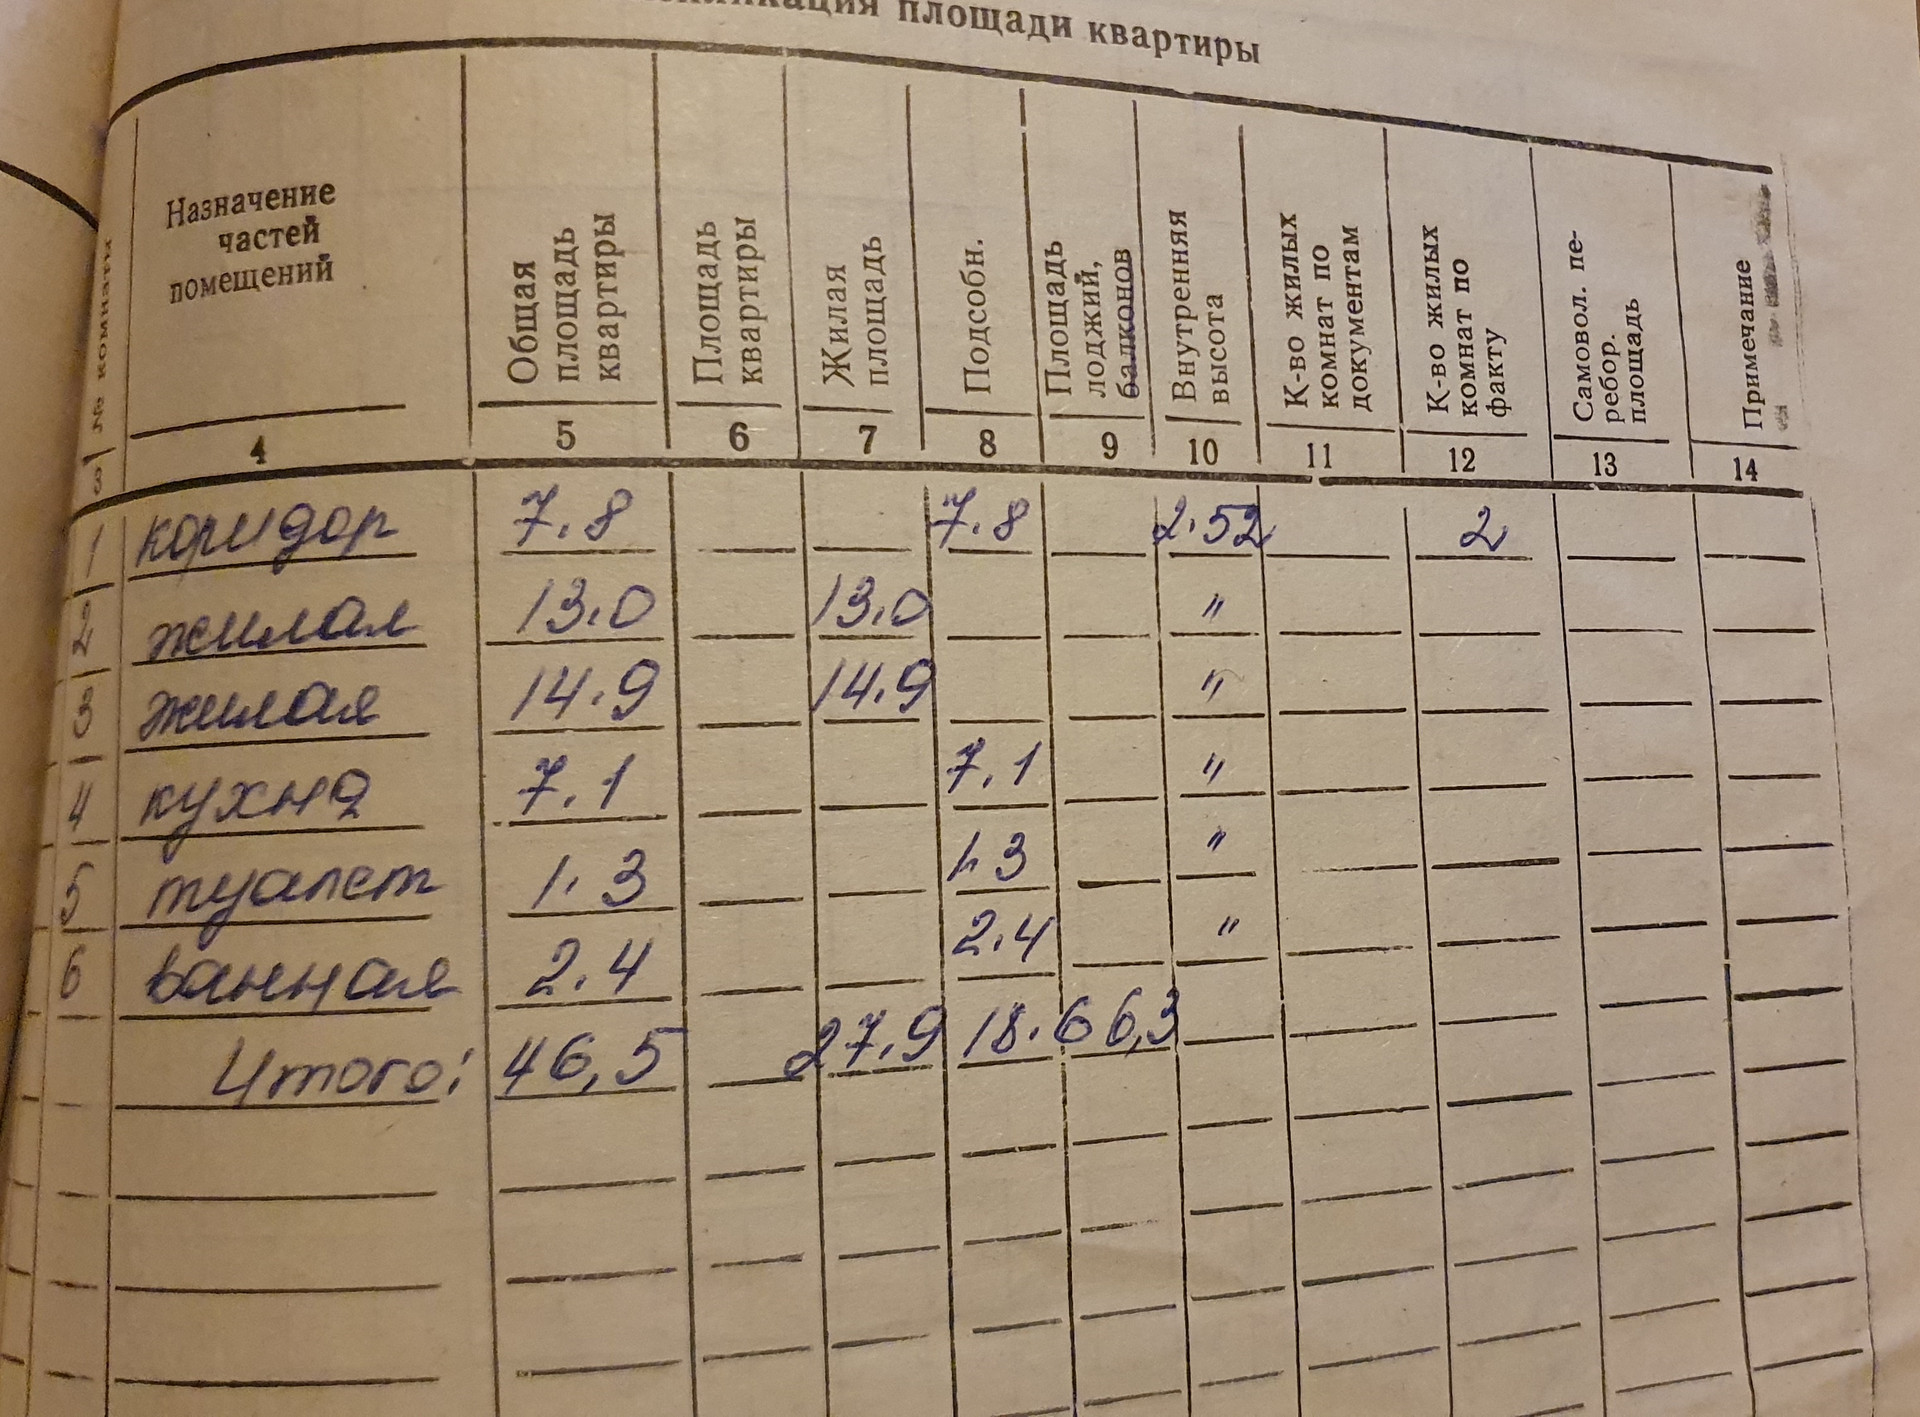 площади квартиры
№ комнаты
Назначение частей помещений
Общая площадь квартиры
Площадь квартиры
Жилая площадь
Подсобн.
Площадь лоджий, балконов
Внутренняя высота
К-во жилых комнат по документам
К-во жилых комнат по факту
Самовол. пе-ребор. площадь
Примечание
3 4 5 6 7 8 9 10 11 12 13 14
1 коридор 7.8 7.8 2.52 2
2 жилая 13.0 13.0 "
3 жилая 14.9 14.9 "
4 кухня 7.1 7.1 "
5 туалет 1.3 1.3 "
6 ванная 2.4 2.4 "
Итого: 46,5 27.9 18.6 6,3